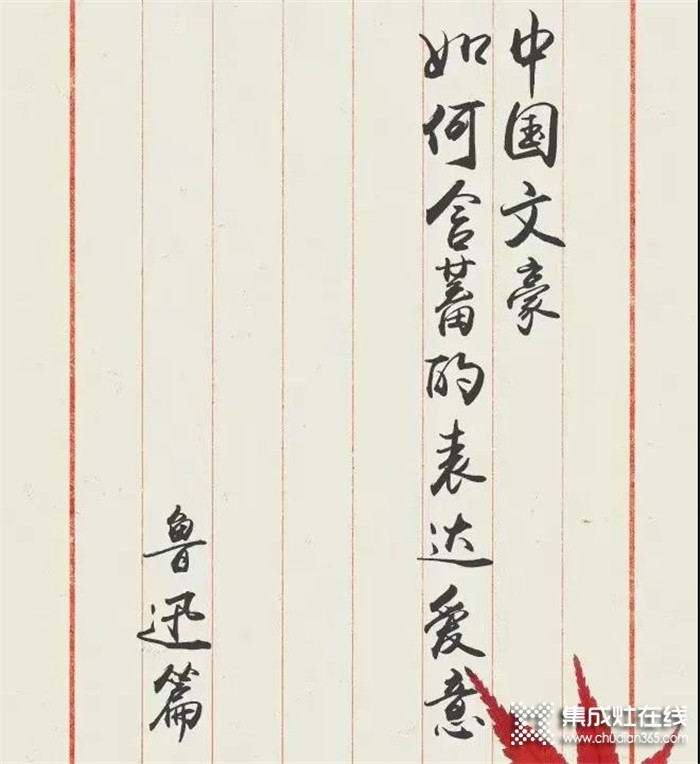 中国文豪
如何含蓄的表达爱意
鲁迅篇
集成灶在线
www.chudian365.com